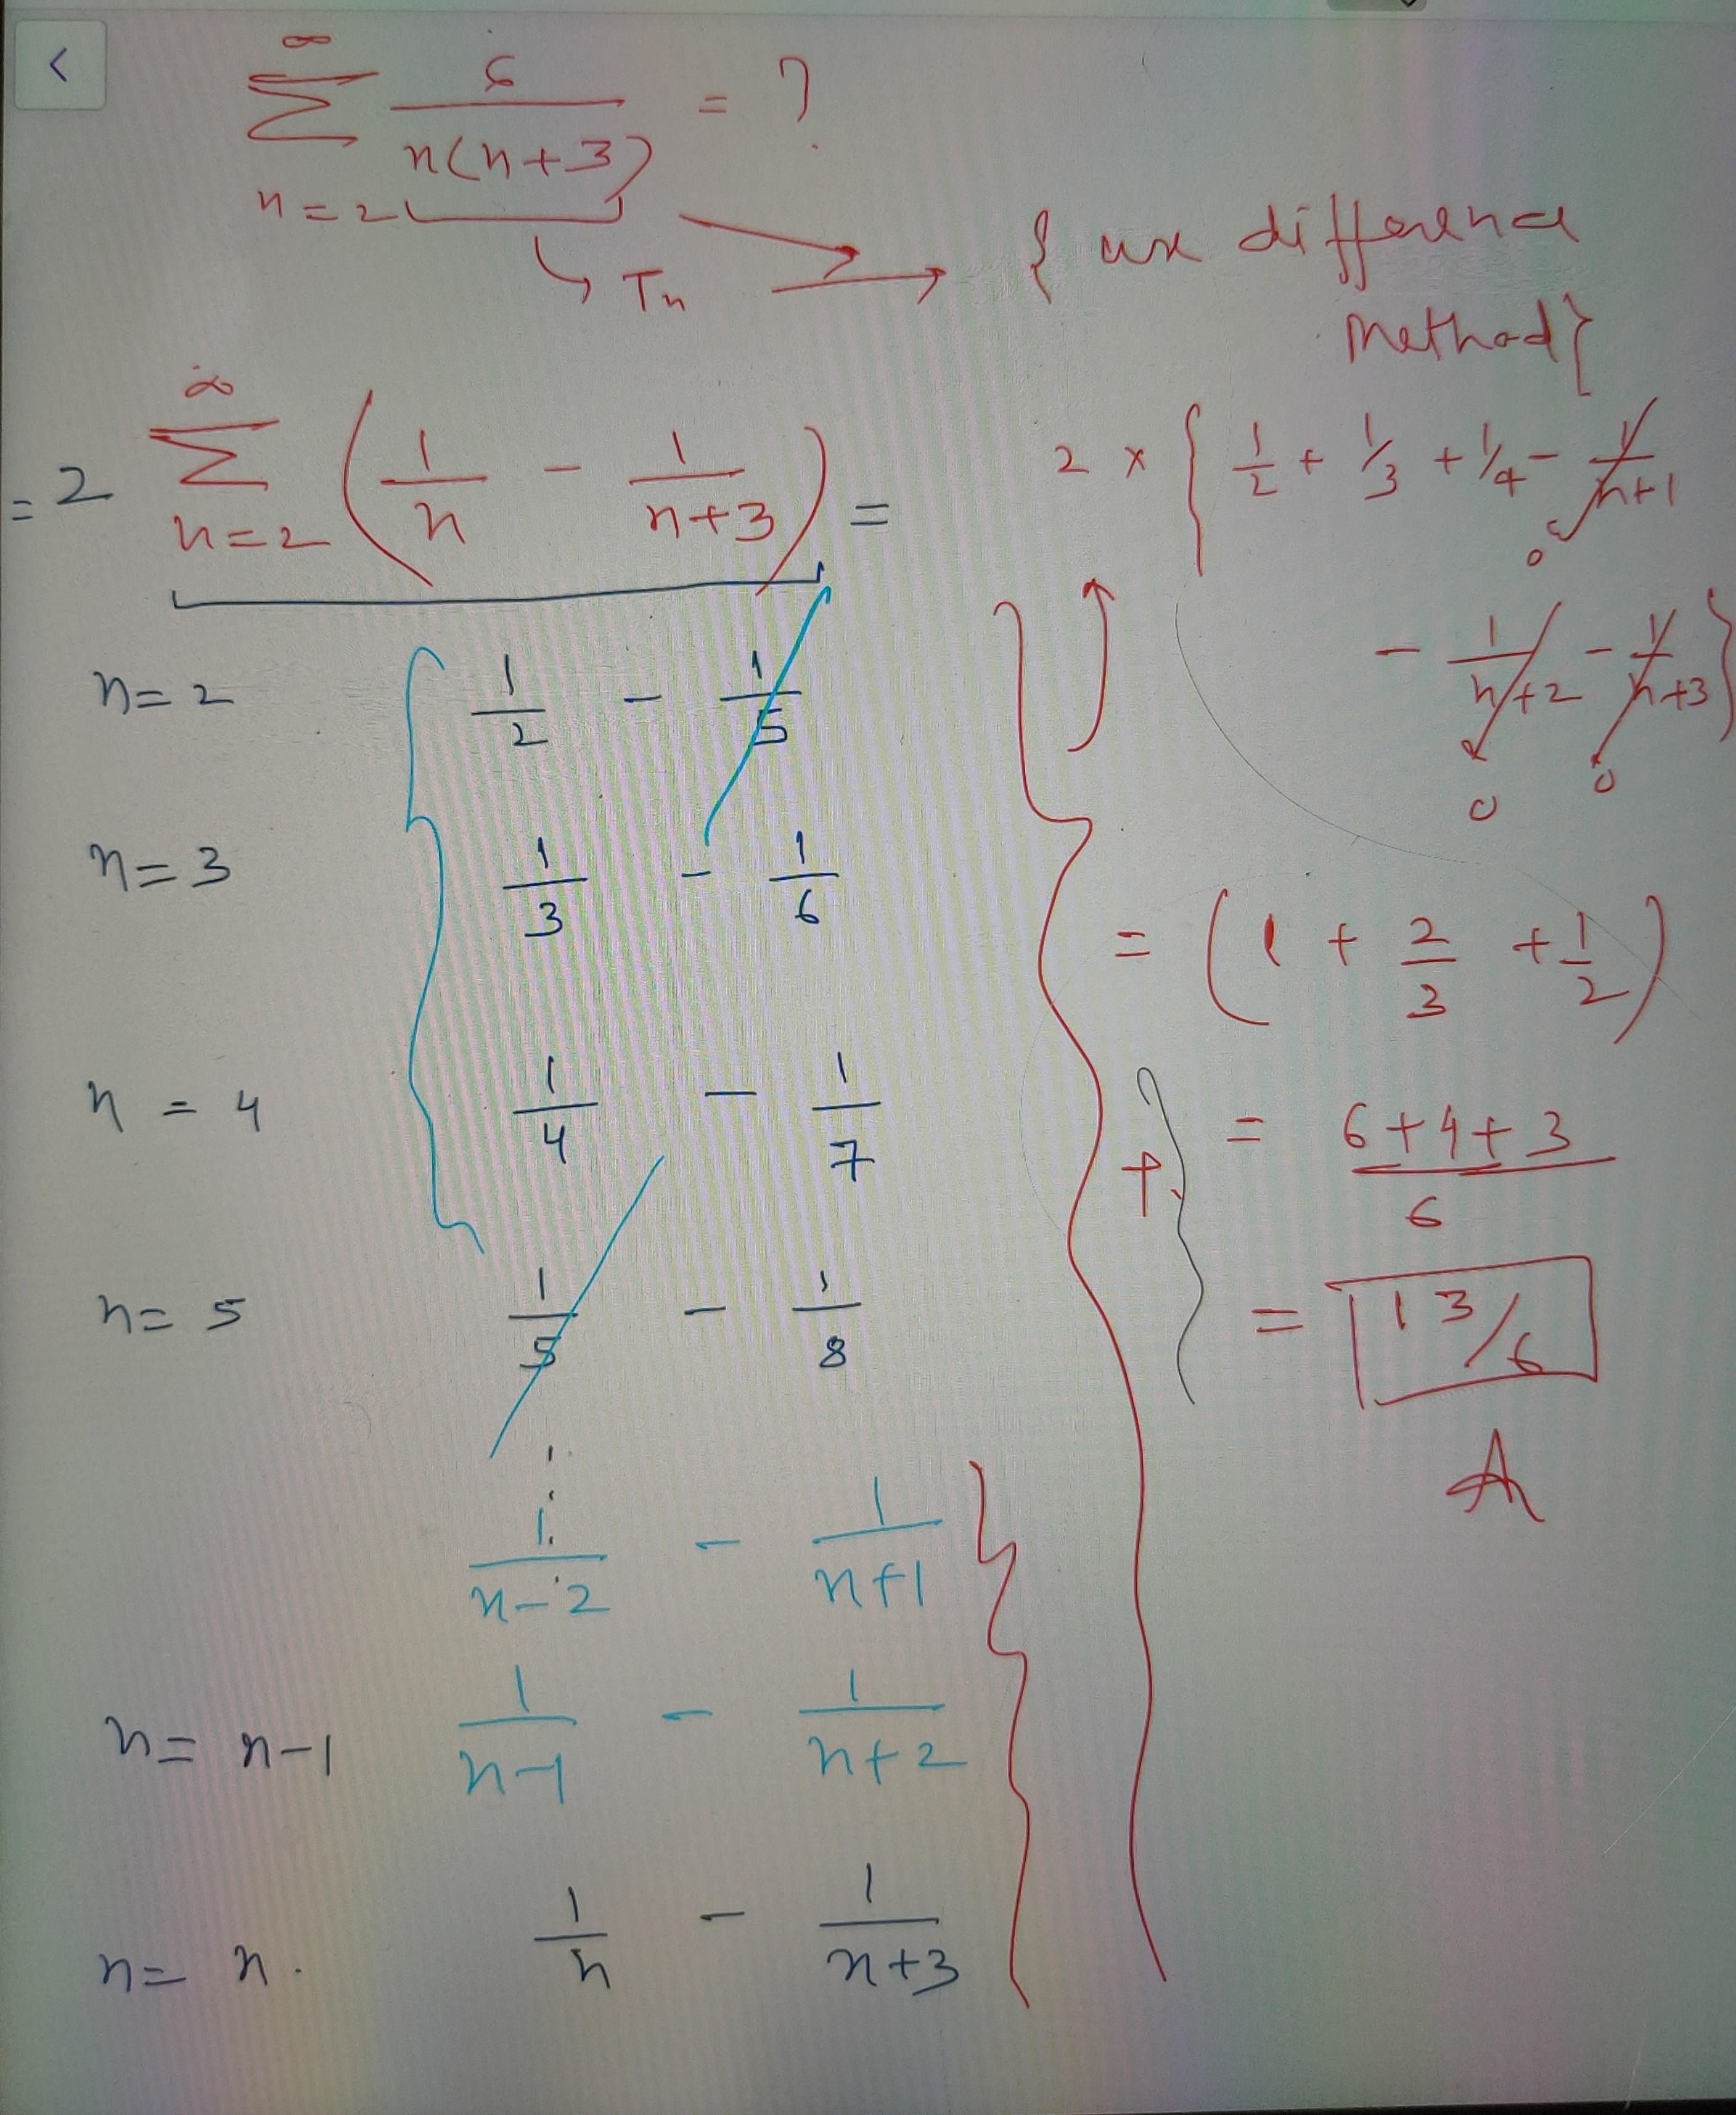 ∞
Σ 6/(n(n+3)) = ?
n=2
↳ Tn → { use difference
Method}
= 2 ∞Σn=2 (1/n − 1/(n+3)) = 2 × { 1/2 + 1/3 + 1/4 − 1/(n+1)
0
− 1/(n+2) − 1/(n+3) }
0 0
n=2 1/2 − 1/5
n=3 1/3 − 1/6
n = 4 1/4 − 1/7
n= 5 1/5 − 1/8
1/(n−2) − 1/(n+1)
n= n−1 1/(n−1) − 1/(n+2)
n= n. 1/n − 1/(n+3)
+
= (1 + 2/3 + 1/2)
= (6+4+3)/6
= 13/6
A